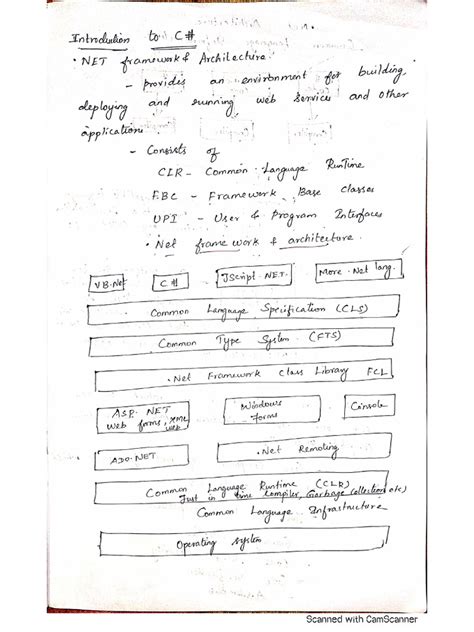 Introduction to C#
• NET framework & Architecture
- provides an environment for building,
deploying and running web services and other
application
- Consists of
CLR - Common Language RunTime
FBC - Framework Base Classes
UPI - User & Program Interfaces
• Net frame work & architecture
VB.Net C# JScript.NET. More .Net lang.
Common Language Specification (CLS)
Common Type System (CTS)
.Net Framework Class Library FCL
ASP. NET
Web forms, XML
web
Windows
Forms
Console
ADO.NET .Net Remoting
Common Language Runtime (CLR)
Just in time Compiler, Garbage Collection etc)
Common Language Infrastructure
Operating System
Scanned with CamScanner